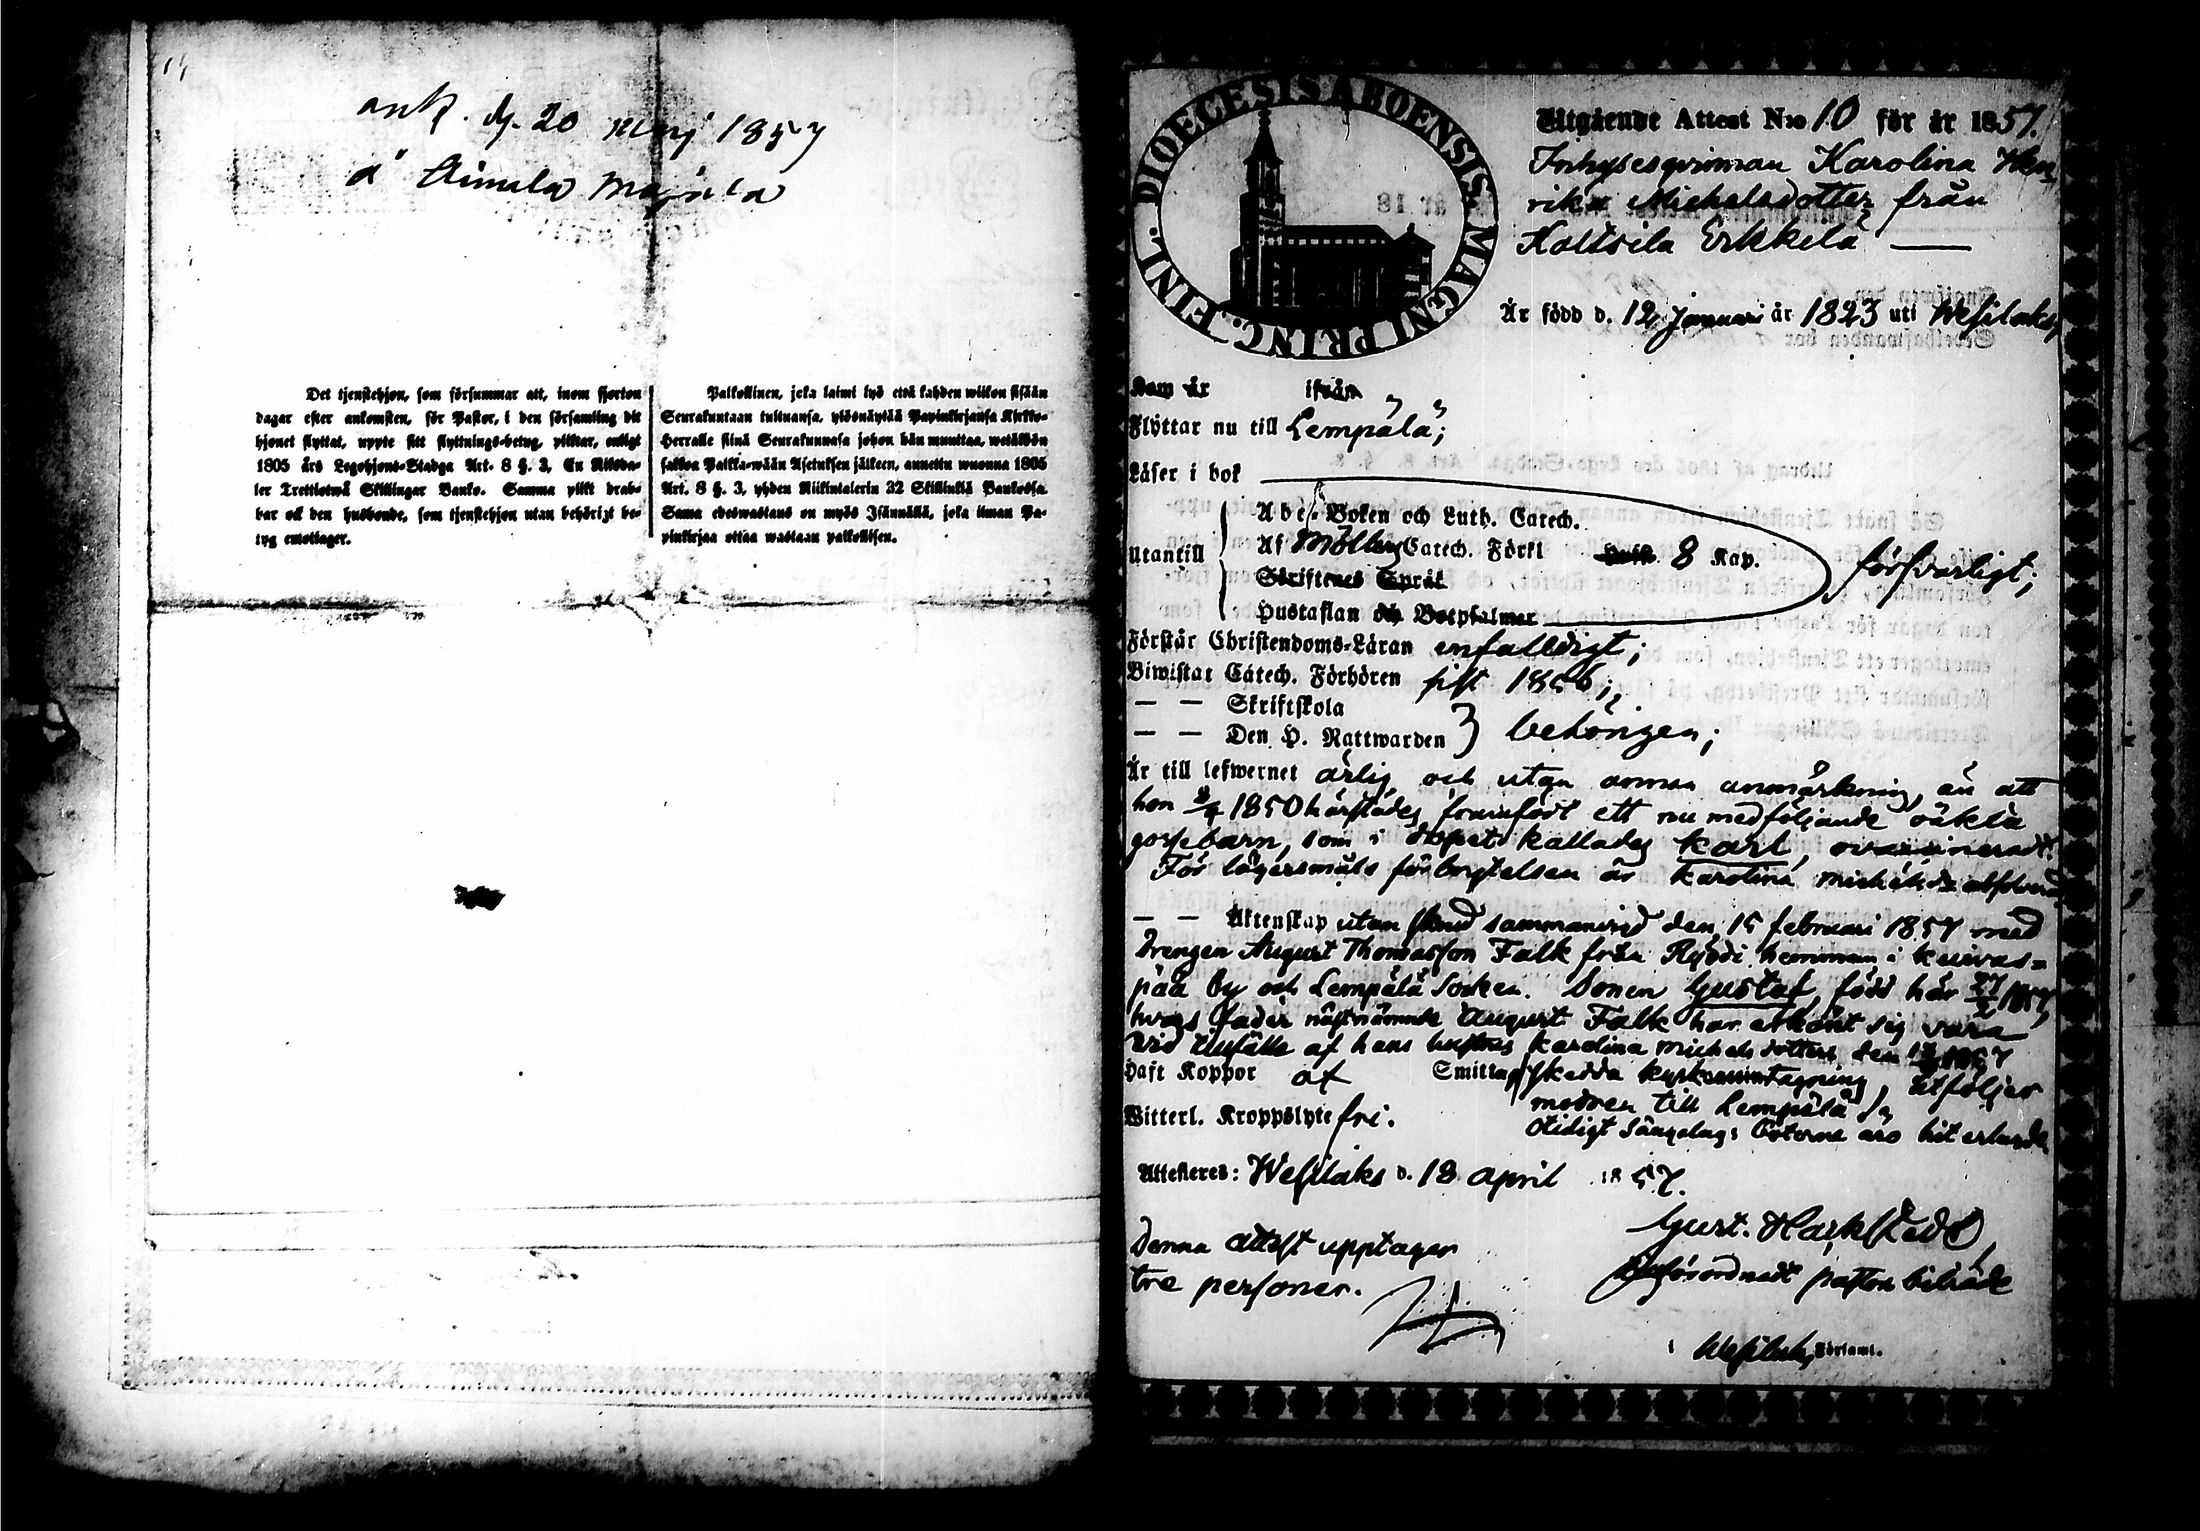 ank. d. 20 Maj 1857
å Aimala Majala
Det tjenstehjon, som försummar att, inom fjorton
dagar efter ankomsten, för Pastor, i den församling dit
hjonet flyttat, uppte sitt flyttnings-betyg, pliktar, enligt
1805 års Legohjons-Stadga Art. 8 §. 3, En Riksda-
ler Trettiotwå Skillingar Banko. Samma plikt drab-
bar ock den husbonde, som tjenstehjon utan behörigt be-
tyg emottager.
Palkollinen, joka laimi lyö että kahden wiikon sisään
Seurakuntaan tultuansa, ylösnäytää Papinkirjansa Kirkko-
Herralle siinä Seurakunnasa johon hän muuttaa, wetäköön
sakkoa Palkka-wään Asetuksen jälkeen, annettu wuonna 1805
Art. 8 §. 3, yhden Riikintalerin 32 Skillinkiä Bankossa.
Sama edeswastaus on myös Isännällä, joka ilman Pa-
pinkirjaa ottaa wastaan palkollisen.
DIOECESIS ABOENSIS. MAGNI PRINC. FINL.
Utgående Attest N:o 10 för år 1857.
Inhysesqvinnan Karolina Hen-
rika Michelsdotter från
Kaltsila Erkkelä
Är född d. 12 Januari år 1823 uti Wesilaks,
Kom år ifrån
Flyttar nu till Lempälä;
Läser i bok
Abc-Boken och Luth. Catech.
Utantill Af Möllers Catech. Förkl 8 Kap. försvarligt;
Skriftenes Språk
Hustaflan och Botpsalmer
Förstår Christendoms-Läran enfalldigt;
Biwistat Catech. Förhören sist 1856;
— — Skriftskola
— — Den H. Nattwarden behörigen;
Är till lefwernet ärlig, och utan annan anmärkning, än att
hon 1850 härstädes framfödt ett nu medföljande oäkta
gossebarn, som i dopet kallades Karl,
För lägersmåls förbrytelsen är Karolina Michelsdr
— — Äktenskap utan sammanvigd den 15 februari 1857 med
Drengen August Thomasson Falk från hemman i Kuivas-
pää by och Lempälä Socken. Sonen Gustaf, född här
hvars fader nästnämnde August Falk har erkänt sig vara
vid tillfälle af hans hustrus Karolina Michelsdotters den 1857
Haft Koppor af Smitta skedda kyrkotagning, åtföljer
modren till Lempälä
Witterl. Kroppslyte fri. äro hit erlagde
Attesteras: Wesilaks d. 18 april 1857.
Gust. Hackstedt,
förordnadt pastors biträde
Denna attest upptager
tre personer.
i Wesilaks Församl.